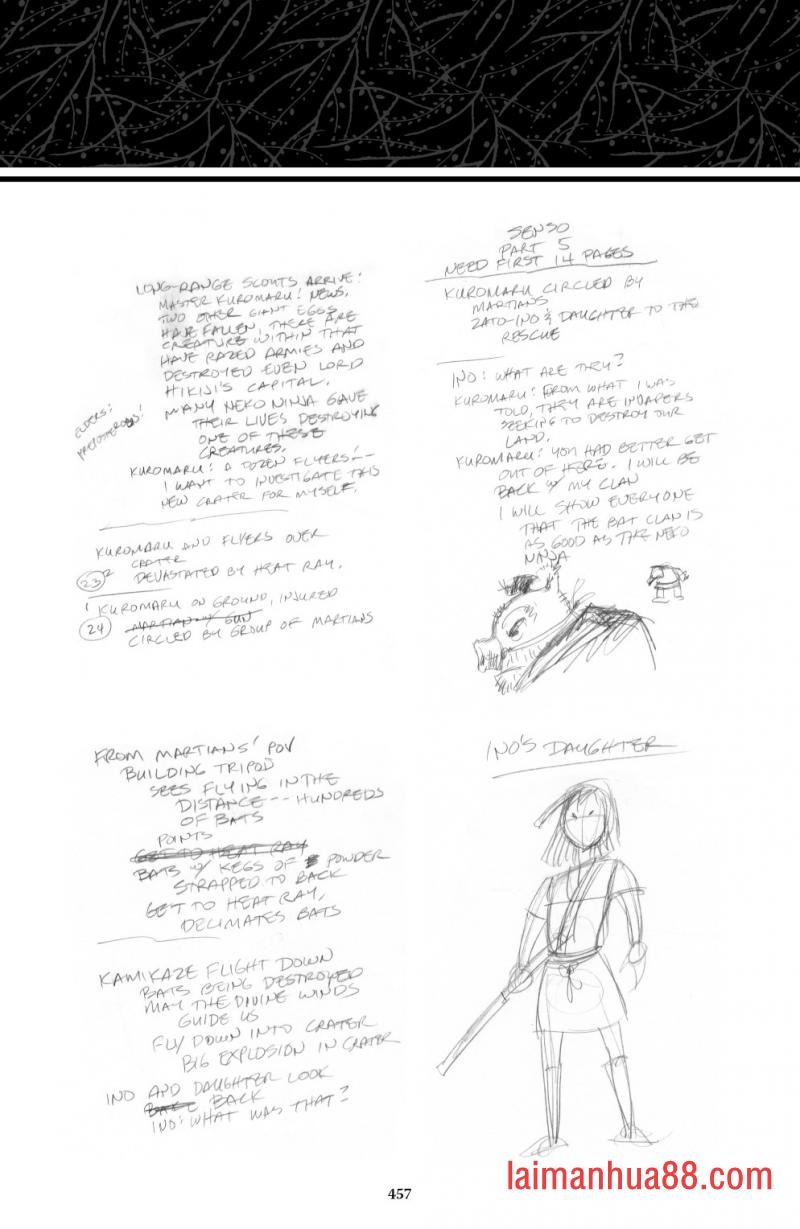 LONG-RANGE SCOUTS ARRIVE:
MASTER KUROMARU! NEWS.
TWO OTHER GIANT EGGS
HAVE FALLEN, THERE ARE
CREATURE WITHIN THAT
HAVE RAZED ARMIES AND
DESTROYED EVEN LORD
HIKIJI'S CAPITAL.
ELDERS:
PREPOSTEROUS!
MANY NEKO NINJA GAVE
THEIR LIVES DESTROYING
ONE OF THESE
CREATURES.
KUROMARU: A DOZEN FLYERS!--
I WANT TO INVESTIGATE THIS
NEW CRATER FOR MYSELF.
KUROMARU AND FLYERS OVER
CRATER
23 2 DEVASTATED BY HEAT RAY.
1 KUROMARU ON GROUND, INJURED
24 MARTIAN W/ GUN
CIRCLED BY GROUP OF MARTIANS
SENSO
PART 5
NEED FIRST 14 PAGES
KUROMARU CIRCLED BY
MARTIANS
ZATO-INO & DAUGHTER TO THE
RESCUE
INO: WHAT ARE THEY?
KUROMARU: FROM WHAT I WAS
TOLD, THEY ARE INVADERS
SEEKING TO DESTROY OUR
LAND.
KUROMARU: YOU HAD BETTER GET
OUT OF HERE. I WILL BE
BACK W/ MY CLAN
I WILL SHOW EVERYONE
THAT THE BAT CLAN IS
AS GOOD AS THE NEKO
NINJA
FROM MARTIANS' POV
BUILDING TRIPOD
SEES FLYING IN THE
DISTANCE -- HUNDREDS
OF BATS
POINTS
GET TO HEAT RAY
BATS W/ KEGS OF POWDER
STRAPPED TO BACK
GET TO HEAT RAY,
DECIMATES BATS
KAMIKAZE FLIGHT DOWN
BATS BEING DESTROYED
MAY THE DIVINE WINDS
GUIDE US
FLY DOWN INTO CRATER
BIG EXPLOSION IN CRATER
INO AND DAUGHTER LOOK
BACK
INO: WHAT WAS THAT?
INO'S DAUGHTER
laimanhua88.com
457